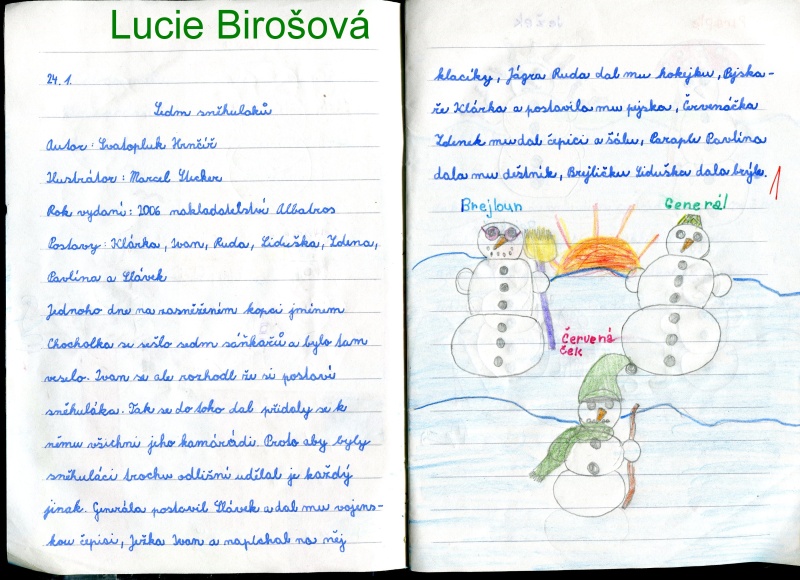 Lucie Birošová
24. 1.
Sedm sněhuláků
Autor: Svatopluk Hrnčíř
Ilustrátor: Marcel Stecker
Rok vydaní: 2006 nakladatelství Albatros
Postavy: Klárka, Ivan, Ruda, Liduška, Zdena,
Pavlína a Slávek
Jednoho dne na zasněženém kopci jménem
Chocholka se sešlo sedm sáňkařů a bylo tam
veselo. Ivan se ale rozhodl že si postaví
sněhuláka. Tak se do toho dal přidaly se k
němu všichni jeho kamarádi. Proto aby byly
sněhuláci trochu odlišní udělal je každý
jinak. Generála postavil Slávek a dal mu vojens-
kou čepici, Ježka Ivan a napíchal na něj
klacíky, Jágra Ruda dal mu hokejku, Pyjska-
ře Klárka a postavila mu pyjska, Červenáčka
Zdenek mu dal čepici a šálu, Paraple Pavlína
dala mu deštník, Brejličku Liduška dala brýle.
1
Brejloun
Generál
Červená
ček